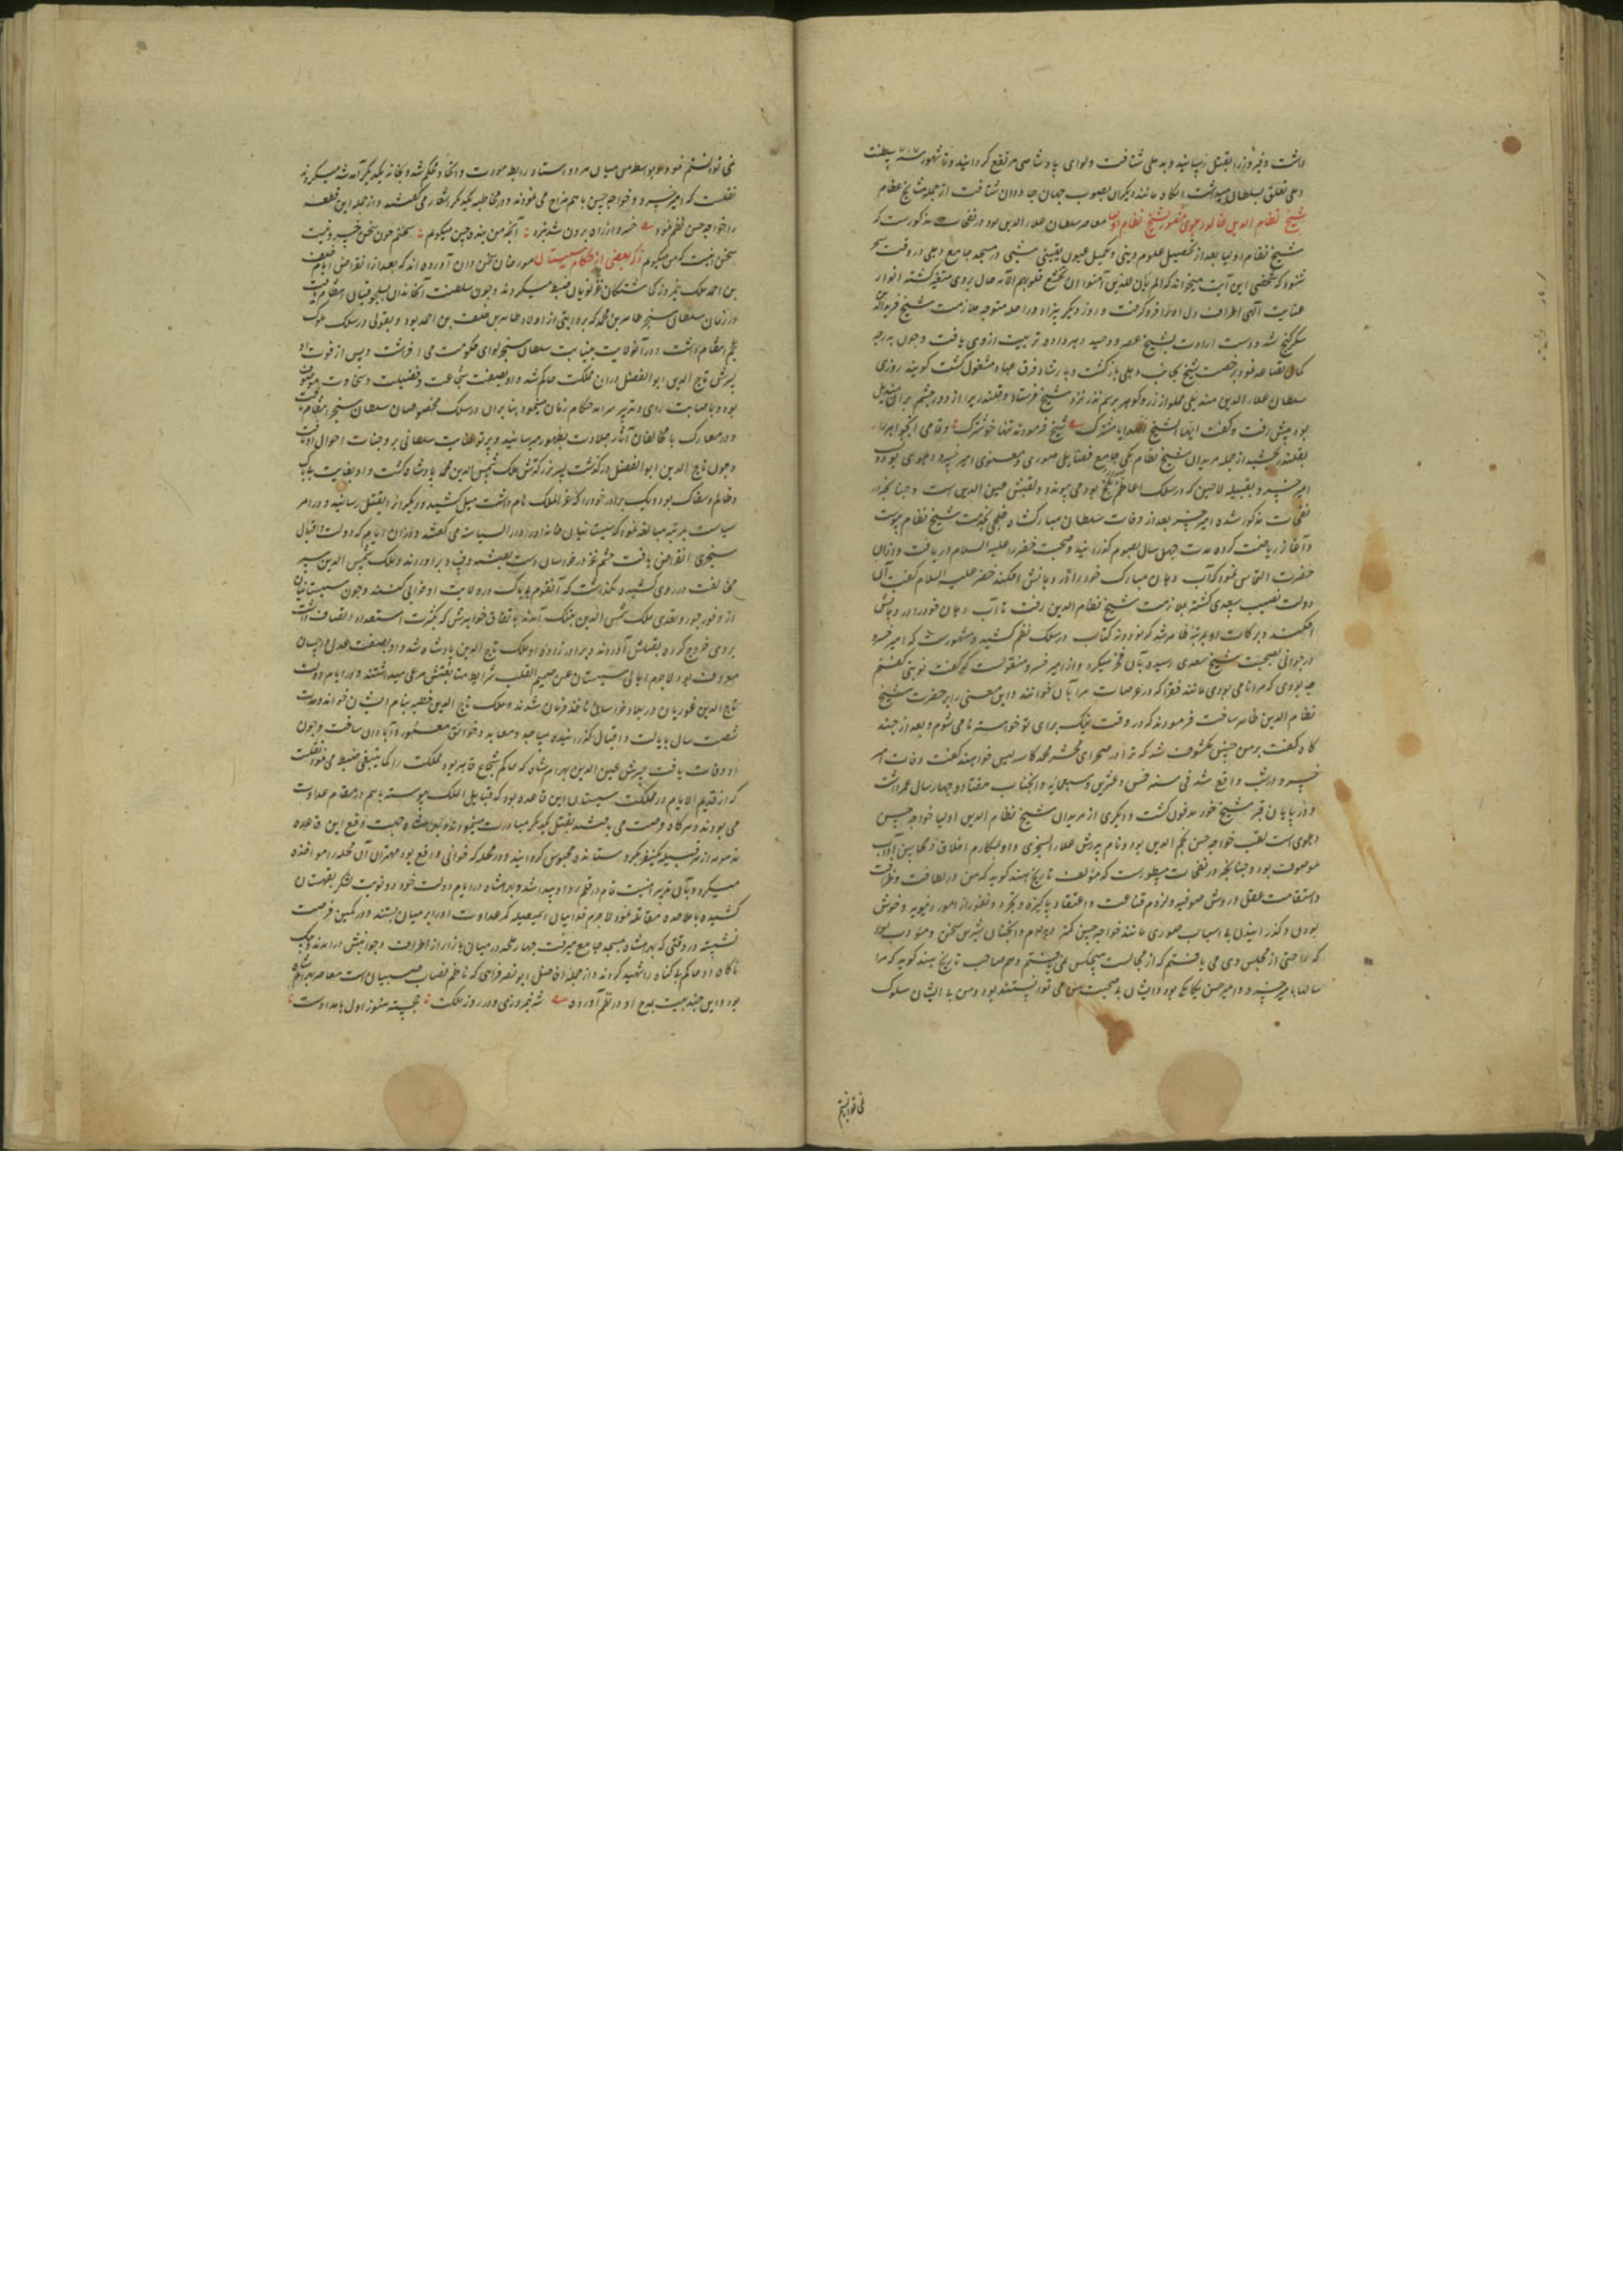 داشت و فیروز را بقتل رسانید و بدهلی شتافت و لوای پادشاهی مرتفع گردانید و تا شهور سنه ۷۱۷ سلطنت
دهلی تعلق بسلطان میداشت آنکاه مانند دیکران بصوب جهان جاودان شتافت از جمله مشایخ عظام
شیخ نظام الدین خالد دهلوی مشهور بشیخ نظام اولیا معاصر سلطان علاء الدین بود در نفحات مذکورست که
شیخ نظام اولیا بعد از تحصیل علوم دینی و تکمیل فنون یقینی شبی در مسجد جامع دهلی در وقت سحر
شنود که شخصی این آیت میخواند که الم یأن للذین آمنوا ان تخشع قلوبهم الآیه حال بروی متغیر کشته انوار
عنایت الهی اطراف دل او را فرو کرفت و روز دیکر بی زاد و راحله متوجه ملازمت شیخ فرید الدین
شکر کنج شد و دست ارادت بشیخ عصر و وحید دهر داده تربیت ازوی یافت و چون بدرجه
کمال تصاعد نمود برخصت شیخ بجانب دهلی باز کشت و بارشاد فرق عباد مشغول کشت کویند روزی
سلطان علاء الدین مندیلی مملو از زر و کوهر برسم نذر نزد شیخ فرستاد و قلندری از دور چشم بر آن مندیل
بود پیش رفت و کفت ایها الشیخ الهدایا مشترک شیخ فرمود نه تنها خوشترک و تمامی آنچه را
بقلندر بخشید از جمله مریدان شیخ نظام یکی جامع فضایل صوری و معنوی امیر خسرو دهلوی بود و
امیر خسرو بقبیله لاچین که در سلک اعاظم بلخ بود می پیوندد و لقبش یمین الدین است و چنانچه در
نفحات مذکور شده امیر خسرو بعد از وفات سلطان مبارکشاه خلجی بخدمت شیخ نظام پیوست
و آغاز ریاضت کرده مدت چهل سال بصوم کذرانید و صحبت خضر را علیه السلام دریافت و از ان
حضرت التماس نمود که آب دهان مبارک خود را در دهانش افکند خضر علیه السلام کفت آن
دولت نصیب سعدی کشته بملازمت شیخ نظام الدین رفت تا آب دهان خود را در دهانش
افکند و برکات او بمرتبه ظاهر شد که نود و نه کتاب در سلک نظم کشید و مشهورست که امیر خسرو
در جوانی بصحبت شیخ سعدی رسیده بآن فخر میکرد و از امیر خسرو منقولست که کفت نوبتی کفتم
چه بودی که مرا نامی بودی مانند فقرا که در عرصات مرا بآن خوانند و این معنی را بر حضرت شیخ
نظام الدین ظاهر ساخت فرمودند که در وقت نیک برای تو خواسته نامی شوم و بعد از چند
کاه کفت بر من چنین مکشوف شد که ترا در صحرای محشر محمد کاسه لیس خواهند کفت وفات امیر
خسرو در شب واقع شد فی سنه خمس و عشرین و سبعمایه و آنجناب هفتاد و چهار سال عمر داشت
و در پایان قبر شیخ خود مدفون کشت و دیکری از مریدان شیخ نظام الدین اولیا خواجه حسن
دهلوی است لقب خواجه حسن نجم الدین بود و نام پدرش علاء السنجری و او بمکارم اخلاق و محاسن آداب
موصوف بود و چنانچه در نفحات مسطورست که مؤلف تاریخ هند کوید که من در لطافت و ظرافت
و استقامت عقل و روش صوفیه و لزوم قناعت و اعتقاد پاکیزه و تجرد و نفور از امور دنیویه و خوش
بودن و کذرانیدن بی اسباب صوری مانند خواجه حسن کمتر دیده‌ام و آنجناب شیرین سخن و مؤدب بود
که راحتی از مجلس وی می یافتم که از مجالست هیچکس نمی یافتم و هم صاحب تاریخ هند کوید که مرا
سالها با امیر خسرو و امیر حسن یکانکی بود و ایشان بی صحبت من نمی توانستند بود و من با ایشان سلوک
نمی توانستم
نمی توانستم نمود و بواسطه من میان هر دو استاد رابطه مودت و اتحاد محکم شد و بخانه یکدیکر آمد شد میکردند
نقلست که امیر خسرو و خواجه حسن با هم مزاح می نمودند و در مخاطبه یکدیکر اشعار می کفتند و از جمله این قطعه
را خواجه حسن نظم نمود خسرو از راه برون شد آنچه من بنده حسن میکویم سخنم چون سخن خسرو نیست
سخن اینست که من میکویم ذکر بعضی از حکام سیستان مورخان سخن دان آورده اند که بعد از انقراض ایام خلف
بن احمد ملک نیمروز کماشتکان غزنویان ضبط میکردند و چون سلطنت آن خاندان بسلجوقیان انتقام یافت
در زمان سلطان سنجر طاهر بن محمد که بروایتی از اولاد طاهر بن خلف بن احمد بود و بقولی در سلک ملوک
عجم انتظام داشت در آن ولایت بنیابت سلطان سنجر لوای حکومت می افراشت و پس از فوت او
پسرش تاج الدین ابو الفضل در ان مملکت حاکم شد و او بصفت شجاعت و فضیلت و سخاوت موصوف
بود و باصابت رای و تدبیر سرآمد حکام زمان مینمود بنابران در سلک مخصوصان سلطان سنجر انتظام یافت
و در معارک با مخالفان آثار جلادت بظهور میرسانید و پرتو عنایت سلطانی بر وجنات احوال او تافت
و چون تاج الدین ابو الفضل در کذشت پسر بزرکترش ملک شمس الدین محمد پادشاه کشت و او بغایت بیباک
و ظالم و سفاک بود و یک برادر خود را که عز الملک نام داشت میل کشید و دیکر را بقتل رسانید و در امر
سیاست بمرتبه مبالغه نمود که سیستانیان خانه او را دار السیاسه می کفتند و در ان ایام که دولت و اقبال
سنجری انقراض یافت حشم غز در خراسان دست بفتنه و فساد بر آوردند و ملک شمس الدین سپر
مخالفت در روی کشیده نکذاشت که آنقوم ناپاک در ولایت او خرابی کنند و چون سیستانیان
از وفور جور و تعدی ملک شمس الدین بتنک آمدند باتفاق خواهرش که بکثرت استعداد اتصاف داشت
بروی خروج کرده بقتلش آوردند و برادر زاده او ملک تاج الدین پادشاه شد و او بصفت عدل و احسان
موصوف بود لاجرم اهالی سیستان عن صمیم القلب شرایط متابعتش مرعی میداشتند و در ایام دولت
تاج الدین غوریان در بلاد خراسان نافذ فرمان شدند و ملک تاج الدین خطبه بنام ایشان خواند و مدت
شصت سال بایالت و اقبال کذرانیده مساجد و معابد و خوانق معمور و آبادان ساخت و چون
او وفات یافت پسرش یمین الدین بهرام شاه که حاکم شجاع قاهر بود مملکت را کما ینبغی ضبط می نمود نقلست
که از قدیم الایام در مملکت سیستان این قاعده بود که قبایل الملک پیوسته با هم در مقام عداوت
می بودند و هر کاه فرصت می یافتند بقتل یکدیکر مبادرت مینمودند و بهرامشاه جهت رفع این قاعده
مذمومه از هر قبیله یکنفر کرو ستانده محبوس کردانید و در محله که خونی واقع بود مهتران آن محله را مواخذه
میکرد و بآن تدبیر امنیت تمام در قلمرو او پیدا شد و بهرامشاه در ایام دولت خود دو نوبت لشکر بقهستان
کشیده با ملاحده مقاتله نمود لاجرم فدائیان اسمعیلیه کمر عداوت او را بر میان بستند و در کمین فرصت
نشسته در وقتی که بهرامشاه بمسجد جامع میرفت چهار ملحد در میان بازار از اطراف و جوانبش در آمدند و بیک
ناکاه او حاکم بیکناه را شهید کردند و از جمله افاضل ابو نصر فراهی که ناظم نصاب صبیان است معاصر بهرامشاه
بود و این چند بیت بمدح او در نظم آورده شه نیمروزی و در روز ملکت خجسته هنوز اول بامدادست